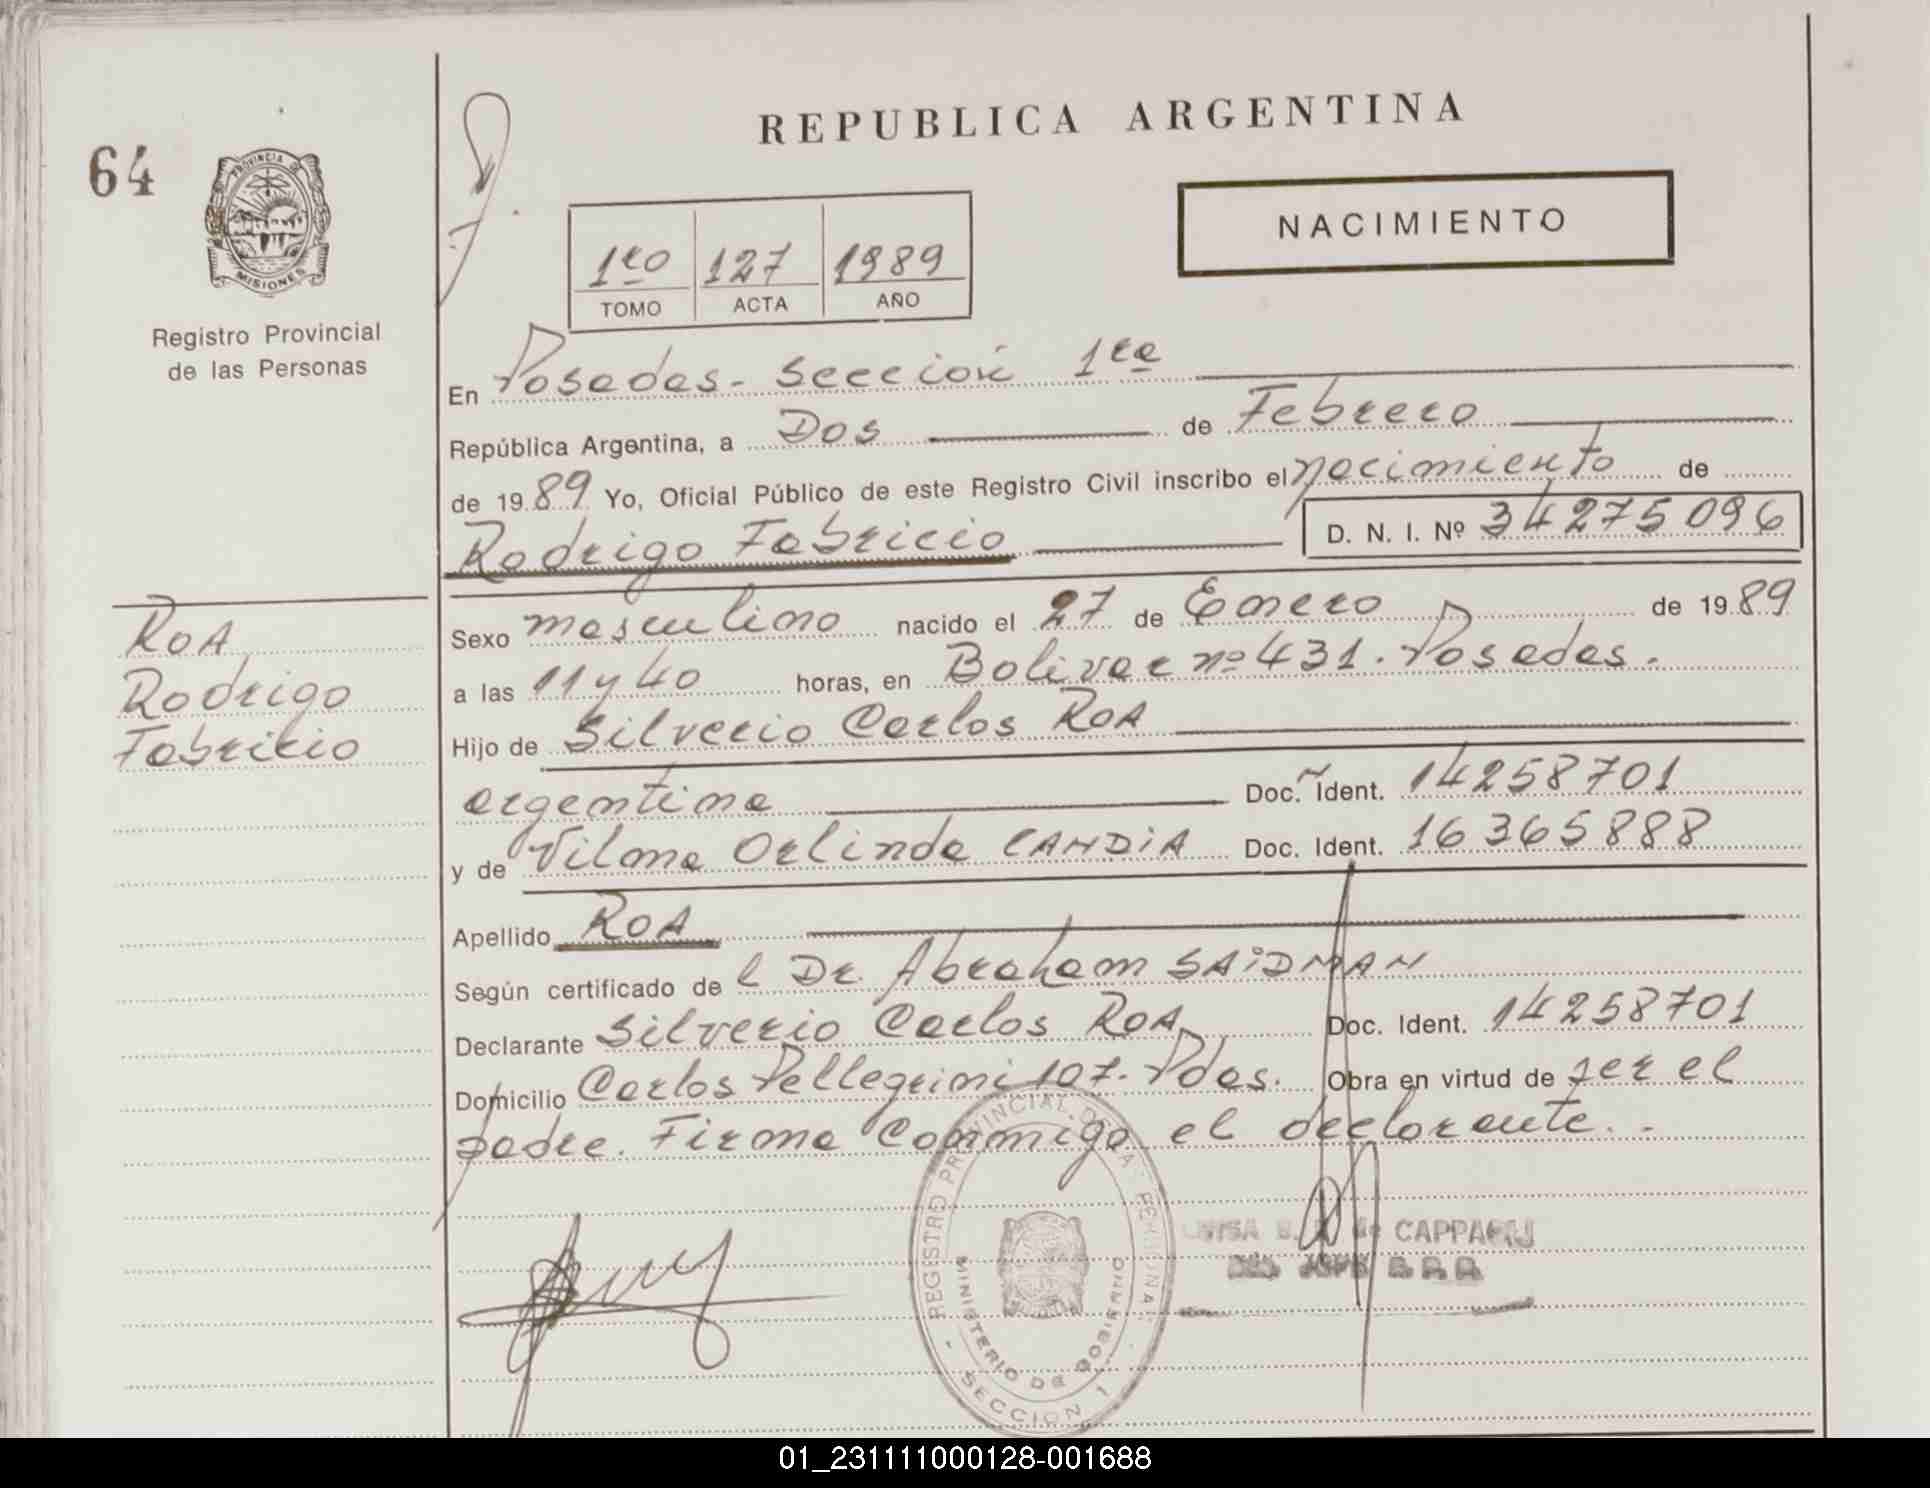 REPUBLICA ARGENTINA
64
PROVINCIA DE
MISIONES
Registro Provincial
de las Personas
1ro 127 1989
TOMO ACTA AÑO
NACIMIENTO
En Posadas - Sección 1ra
República Argentina, a Dos de Febrero
de 1989 Yo, Oficial Público de este Registro Civil inscribo el nacimiento de
Rodrigo Fabricio D. N. I. Nº 34275096
ROA
Rodrigo
Fabricio
Sexo masculino nacido el 27 de Enero de 1989
a las 11 y 40 horas, en Bolivar nº 431. Posadas.
Hijo de Silverio Carlos ROA
argentina Doc. Ident. 14258701
y de Vilma Orlinda CANDIA Doc. Ident. 16365888
Apellido ROA
Según certificado de l Dr. Abraham SAIDMAN
Declarante Silverio Carlos ROA Doc. Ident. 14258701
Domicilio Carlos Pellegrini 107. Pdas. Obra en virtud de ser el
padre. Firma Conmigo el declarante.
REGISTRO PROVINCIAL DE LA PERSONAS
MINISTERIO DE GOBIERNO
- SECCION 1 -
de CAPPARI
01_231111000128-001688